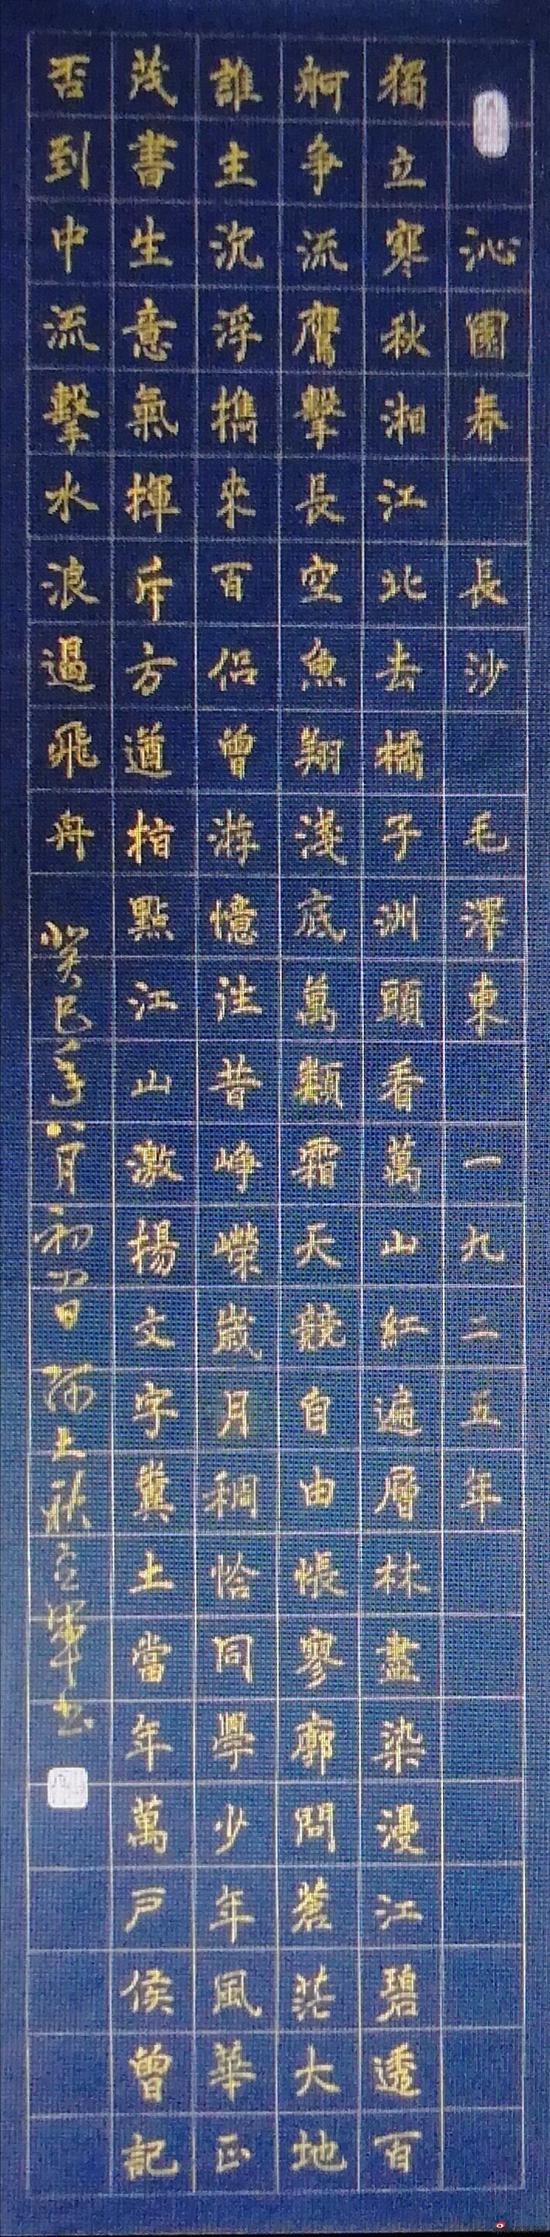 沁園春 長沙 毛澤東 一九二五年
獨立寒秋湘江北去橘子洲頭看萬山紅遍層林盡染漫江碧透百
舸爭流鷹擊長空魚翔淺底萬類霜天競自由悵寥廓問蒼茫大地
誰主沉浮攜來百侣曾游憶往昔崢嶸歲月稠恰同學少年風華正
茂書生意氣揮斥方遒指點江山激揚文字糞土當年萬戶侯曾記
否到中流擊水浪遏飛舟 癸巳年八月初四日